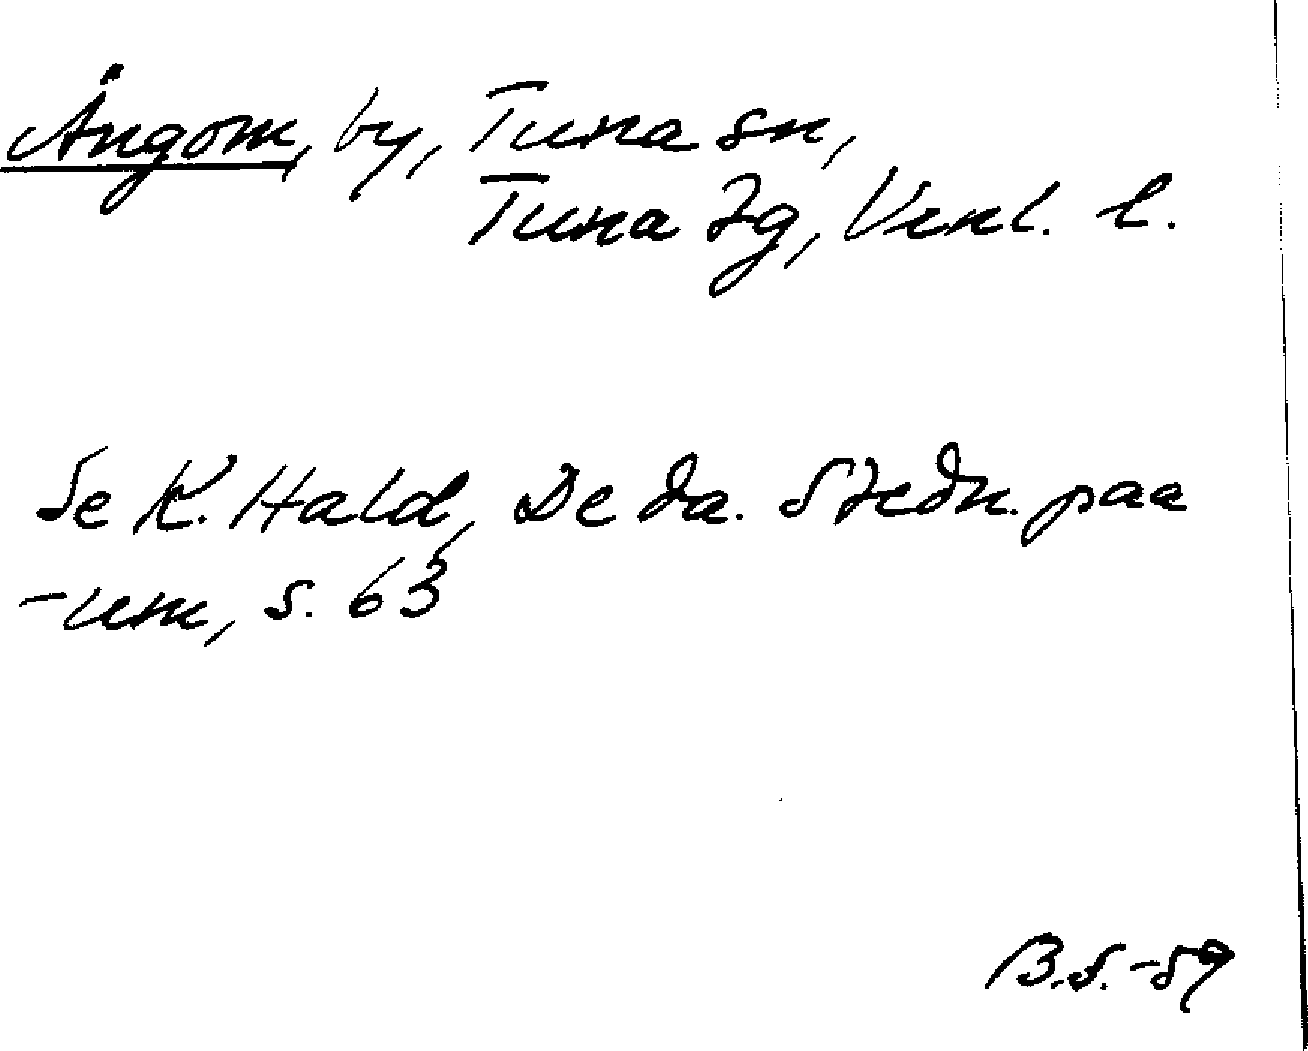 Ängom, by, Tuna sn,
Tuna tg, Venl. l.
Se K. Hald, De da. Stedn. paa
-um, s. 63
B.S. -59